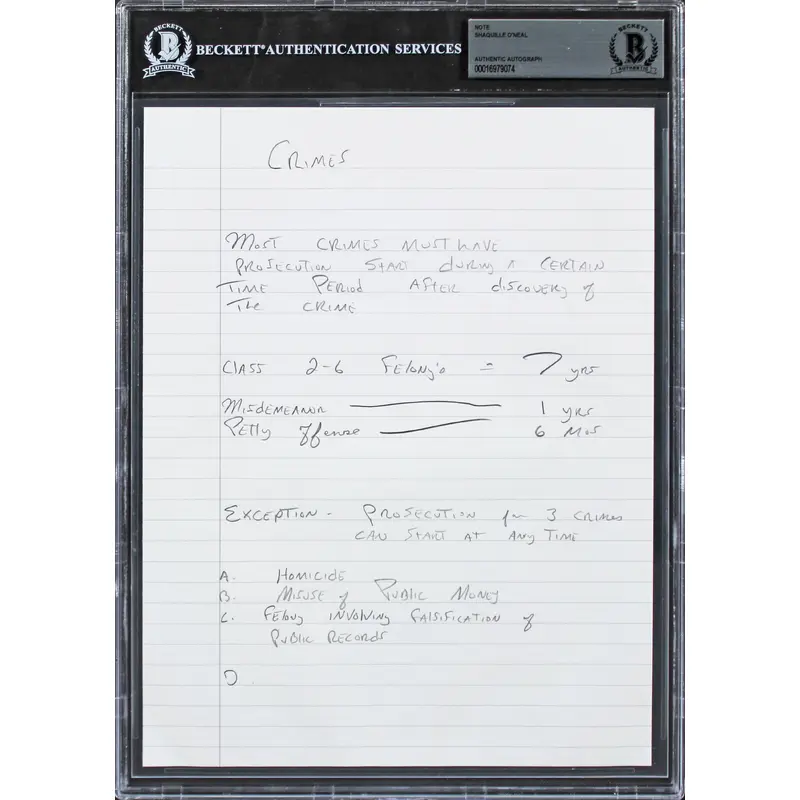 BECKETT
B
AUTHENTIC
BECKETT® AUTHENTICATION SERVICES
NOTE
SHAQUILLE O'NEAL
AUTHENTIC AUTOGRAPH
00016979074
BECKETT
B
AUTHENTIC
CRIMES
MOST CRIMES MUST HAVE
PROSECUTION START DURING A CERTAIN
TIME PERIOD AFTER discovery of
THE CRIME
CLASS 2-6 FELONY'S = 7 yrs
MISDEMEANOR — 1 yrs
PETTY Offense — 6 MOS
EXCEPTION - PROSECUTION for 3 CRIMES
CAN START AT ANY TIME
A. HOMICIDE
B. MISUSE of PUBLIC MONEY
C. FELONY INVOLVING FALSIFICATION of
PUBLIC RECORDS
D.